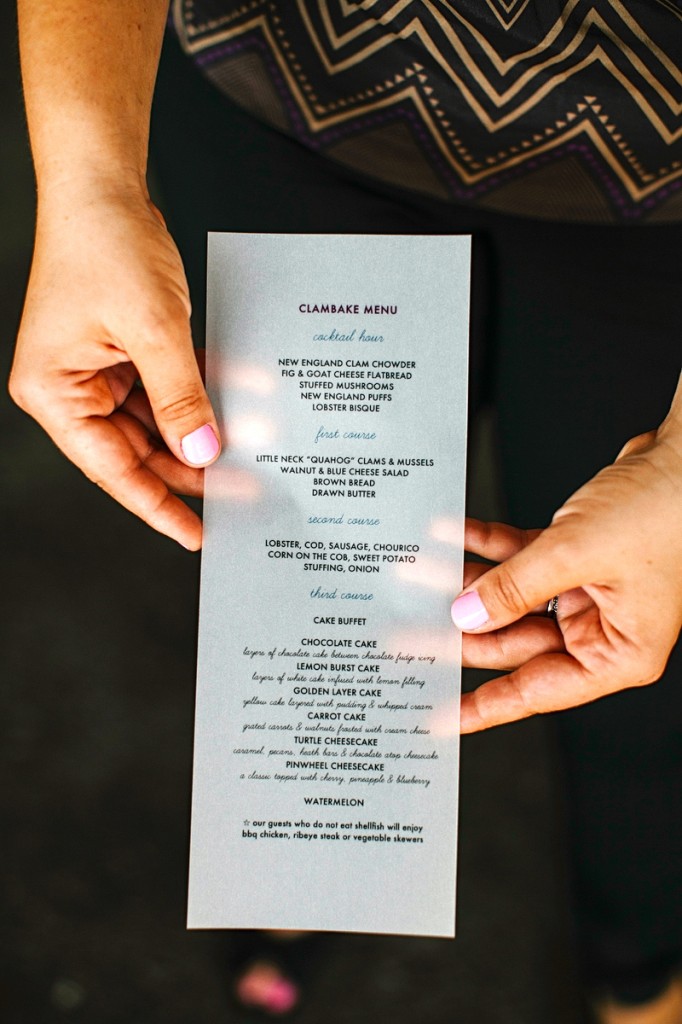 CLAMBAKE MENU
cocktail hour
NEW ENGLAND CLAM CHOWDER
FIG & GOAT CHEESE FLATBREAD
STUFFED MUSHROOMS
NEW ENGLAND PUFFS
LOBSTER BISQUE
first course
LITTLE NECK "QUAHOG" CLAMS & MUSSELS
WALNUT & BLUE CHEESE SALAD
BROWN BREAD
DRAWN BUTTER
second course
LOBSTER, COD, SAUSAGE, CHOURICO
CORN ON THE COB, SWEET POTATO
STUFFING, ONION
third course
CAKE BUFFET
CHOCOLATE CAKE
layers of chocolate cake between chocolate fudge icing
LEMON BURST CAKE
layers of white cake infused with lemon filling
GOLDEN LAYER CAKE
yellow cake layered with pudding & whipped cream
CARROT CAKE
grated carrots & walnuts frosted with cream cheese
TURTLE CHEESECAKE
caramel, pecans, heath bars & chocolate atop cheesecake
PINWHEEL CHEESECAKE
a classic topped with cherry, pineapple & blueberry
WATERMELON
☆ our guests who do not eat shellfish will enjoy
bbq chicken, ribeye steak or vegetable skewers